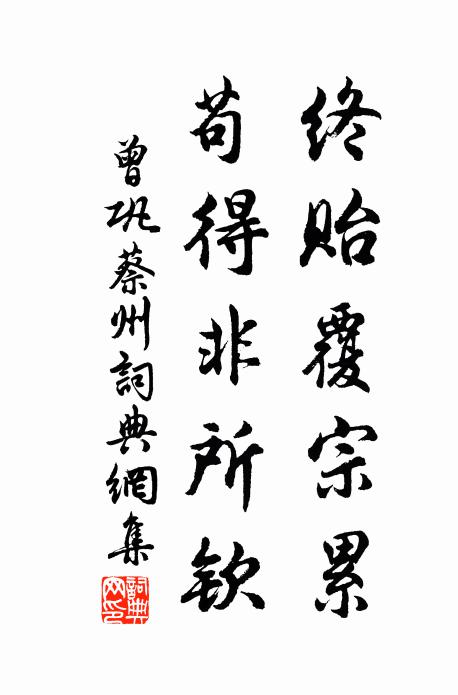 終貽覆宗累
苟得非所欽
曾巩蔡州詞典網集
詞典网印